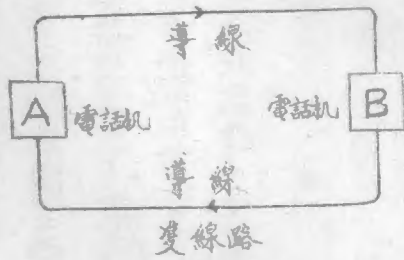 導線
A 電話机 電話机 B
導線
雙線路